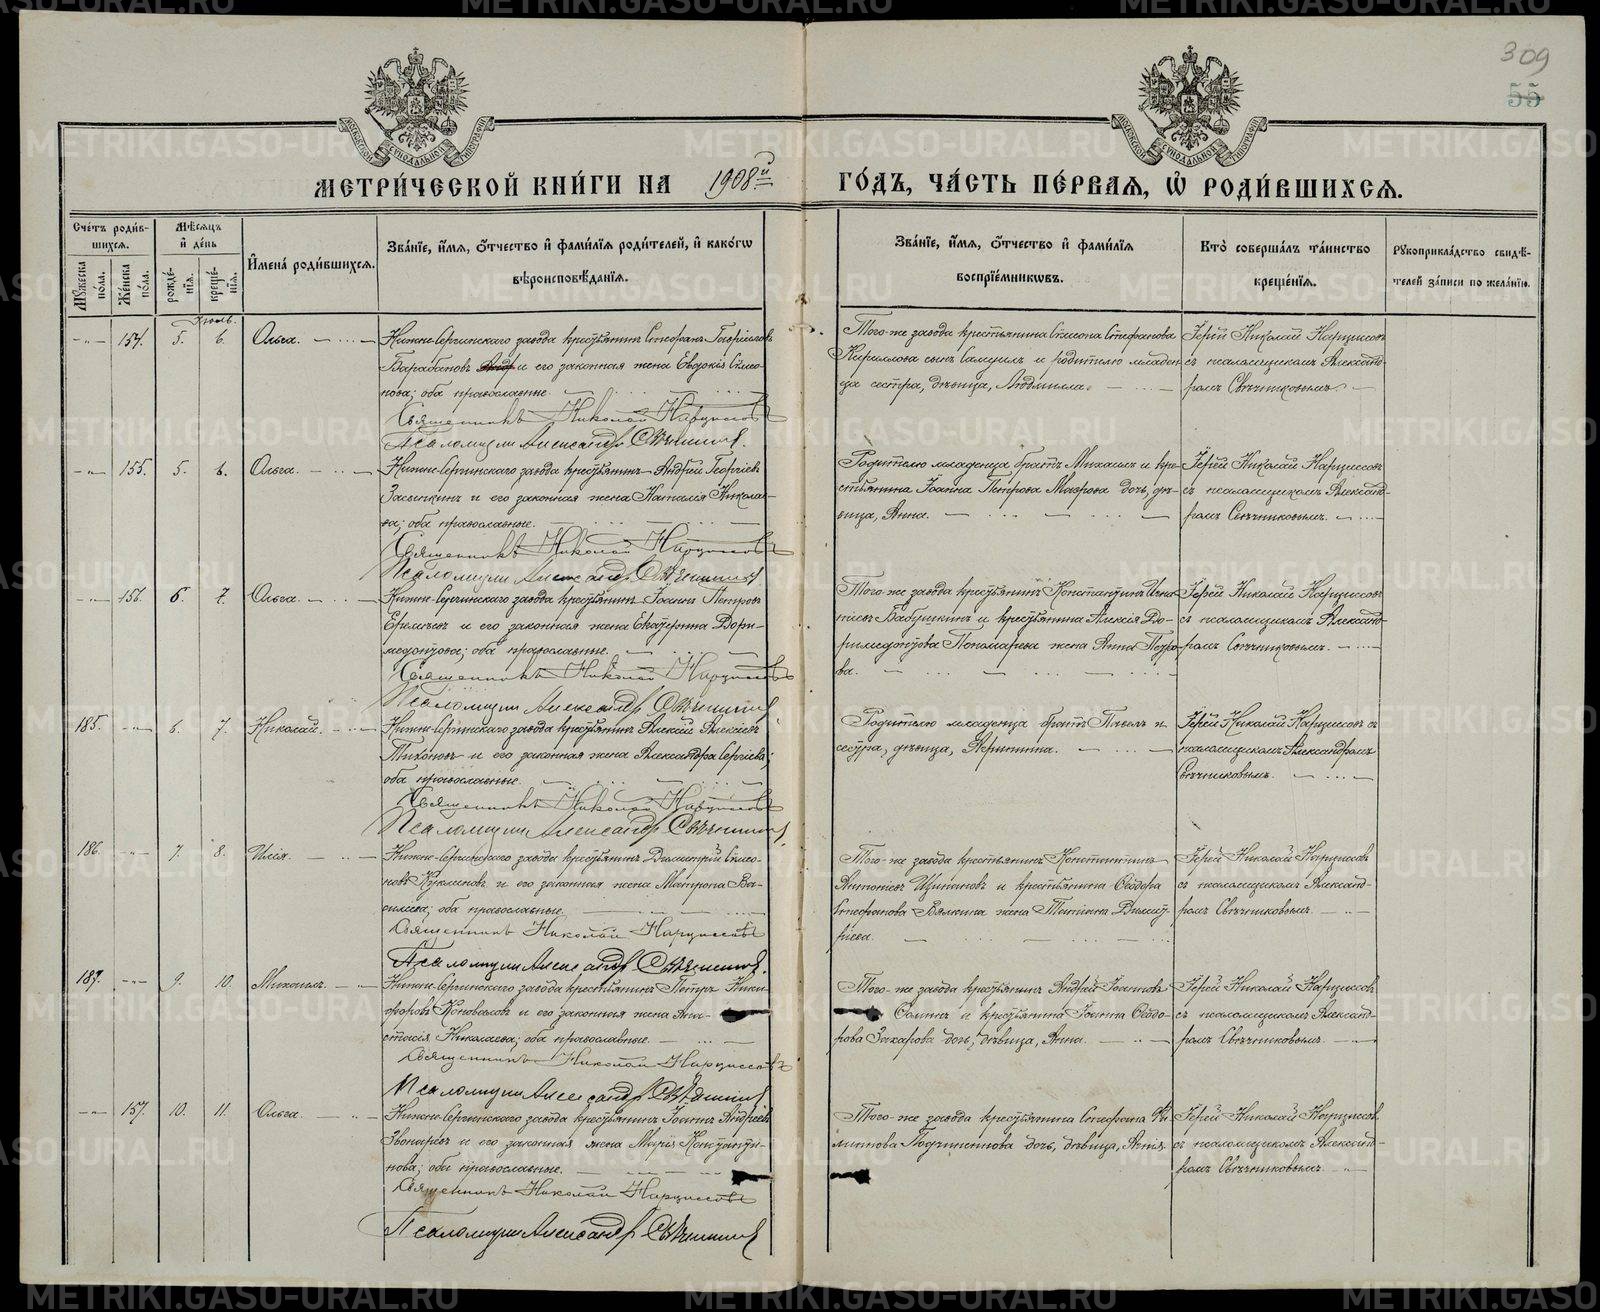 309
55
МЕТРИ́ЧЕСКОЙ КНИ́ГИ НА 1908й ГО́ДЪ, ЧА́СТЬ ПЕ́РВАѦ, Ѡ҆ РОДИ́ВШИХСѦ.
Сче́тъ роди́вшихсѧ.
Мужеска по́ла.
Же́нска по́ла.
Мѣ́сѧцъ и҆ де́нь
рожде́нїѧ.
креще́нїѧ.
И҆мена̀ роди́вшихсѧ.
Зва́нїе, и҆́мѧ, ѻ҆́тчество и҆ фами́лїѧ роди́телей, и҆ како́гѡ вѣроисповѣ́данїѧ.
Зва́нїе, и҆́мѧ, ѻ҆́тчество и҆ фами́лїѧ воспрїе́мникѡвъ.
Кто̀ соверша́лъ та́инство креще́нїѧ.
Рꙋкоприкла́дство свидѣ́телей за́писи по жела́нїю.
Іюль.
154. 5. 6. Ольга.
Нижне-Сергинскаго завода крестьянинъ Стефанъ Гавриловъ
Барабановъ и его законная жена Евдокія Симео-
нова; оба православные.
Священникъ Николай Нарциссовъ
Псаломщикъ Александръ Свѣчниковъ.
Того-же завода крестьянина Симеона Стефанова
Кириллова сынъ Самуилъ и родителю младен-
ца сестра, дѣвица, Людмила.
Іерей Николай Нарциссовъ
съ псаломщикомъ Александ-
ромъ Свѣчниковымъ.
155. 5. 6. Ольга.
Нижне-Сергинскаго завода крестьянинъ Андрей Георгіевъ
Засыпкинъ и его законная жена Наталія Николае-
ва; оба православные.
Священникъ Николай Нарциссовъ
Псаломщикъ Александръ Свѣчниковъ
Родителю младенца братъ Михаилъ и кре-
стьянина Іоанна Петрова Маврова дочь, дѣ-
вица, Анна.
Іерей Николай Нарциссовъ
съ псаломщикомъ Александ-
ромъ Свѣчниковымъ.
156. 6. 7. Ольга.
Нижне-Сергинскаго завода крестьянинъ Іоаннъ Петровъ
и его законная жена Екатерина Дори-
медонтова; оба православные.
Священникъ Николай Нарциссовъ
Псаломщикъ Александръ Свѣчниковъ
Того-же завода крестьянинъ Константинъ Игна-
тіевъ Бабушкинъ и крестьянина Алексія До-
римедонтова Пономарева жена Анна Петро-
ва.
Іерей Николай Нарциссовъ
съ псаломщикомъ Александ-
ромъ Свѣчниковымъ.
185. 6. 7. Николай.
Нижне-Сергинскаго завода крестьянинъ Алексій Алексіевъ
Тихоновъ и его законная жена Александра Сергіева;
оба православные.
Священникъ Николай Нарциссовъ
Псаломщикъ Александръ Свѣчниковъ
Родителю младенца братъ Павелъ и
сестра, дѣвица,
Іерей Николай Нарциссовъ съ
псаломщикомъ Александромъ
Свѣчниковымъ.
186. 7. 8. Илія.
Нижне-Сергинскаго завода крестьянинъ Димитрій Симео-
новъ и его законная жена Матрона Ва-
силіева; оба православные.
Священникъ Николай Нарциссовъ
Псаломщикъ Александръ Свѣчниковъ.
Того-же завода крестьянинъ Константинъ
Антоніевъ и крестьянина Ѳеодора
Стефанова жена Татіана Димит-
ріева.
Іерей Николай Нарциссовъ
съ псаломщикомъ Александ-
ромъ Свѣчниковымъ.
187. 9. 10. Михаилъ.
Нижне-Сергинскаго завода крестьянинъ Петръ Ники-
форовъ Коноваловъ и его законная жена Ана-
стасія Николаева; оба православные.
Священникъ Николай Нарциссовъ
Псаломщикъ Александръ Свѣчниковъ
Того-же завода крестьянинъ Андрей Іоанновъ
и крестьянина Іоанна Ѳеодо-
рова Захарова дочь, дѣвица, Анна.
Іерей Николай Нарциссовъ
съ псаломщикомъ Александ-
ромъ Свѣчниковымъ.
157. 10. 11. Ольга.
Нижне-Сергинскаго завода крестьянинъ Іоаннъ Андреевъ
Звонаревъ и его законная жена Марія Константи-
нова; оба православные.
Священникъ Николай Нарциссовъ
Псаломщикъ Александръ Свѣчниковъ
Того-же завода крестьянина Стефана
дочь, дѣвица,
Іерей Николай Нарциссовъ
съ псаломщикомъ Александ-
ромъ Свѣчниковымъ.
METRIKI.GASO-URAL.RU